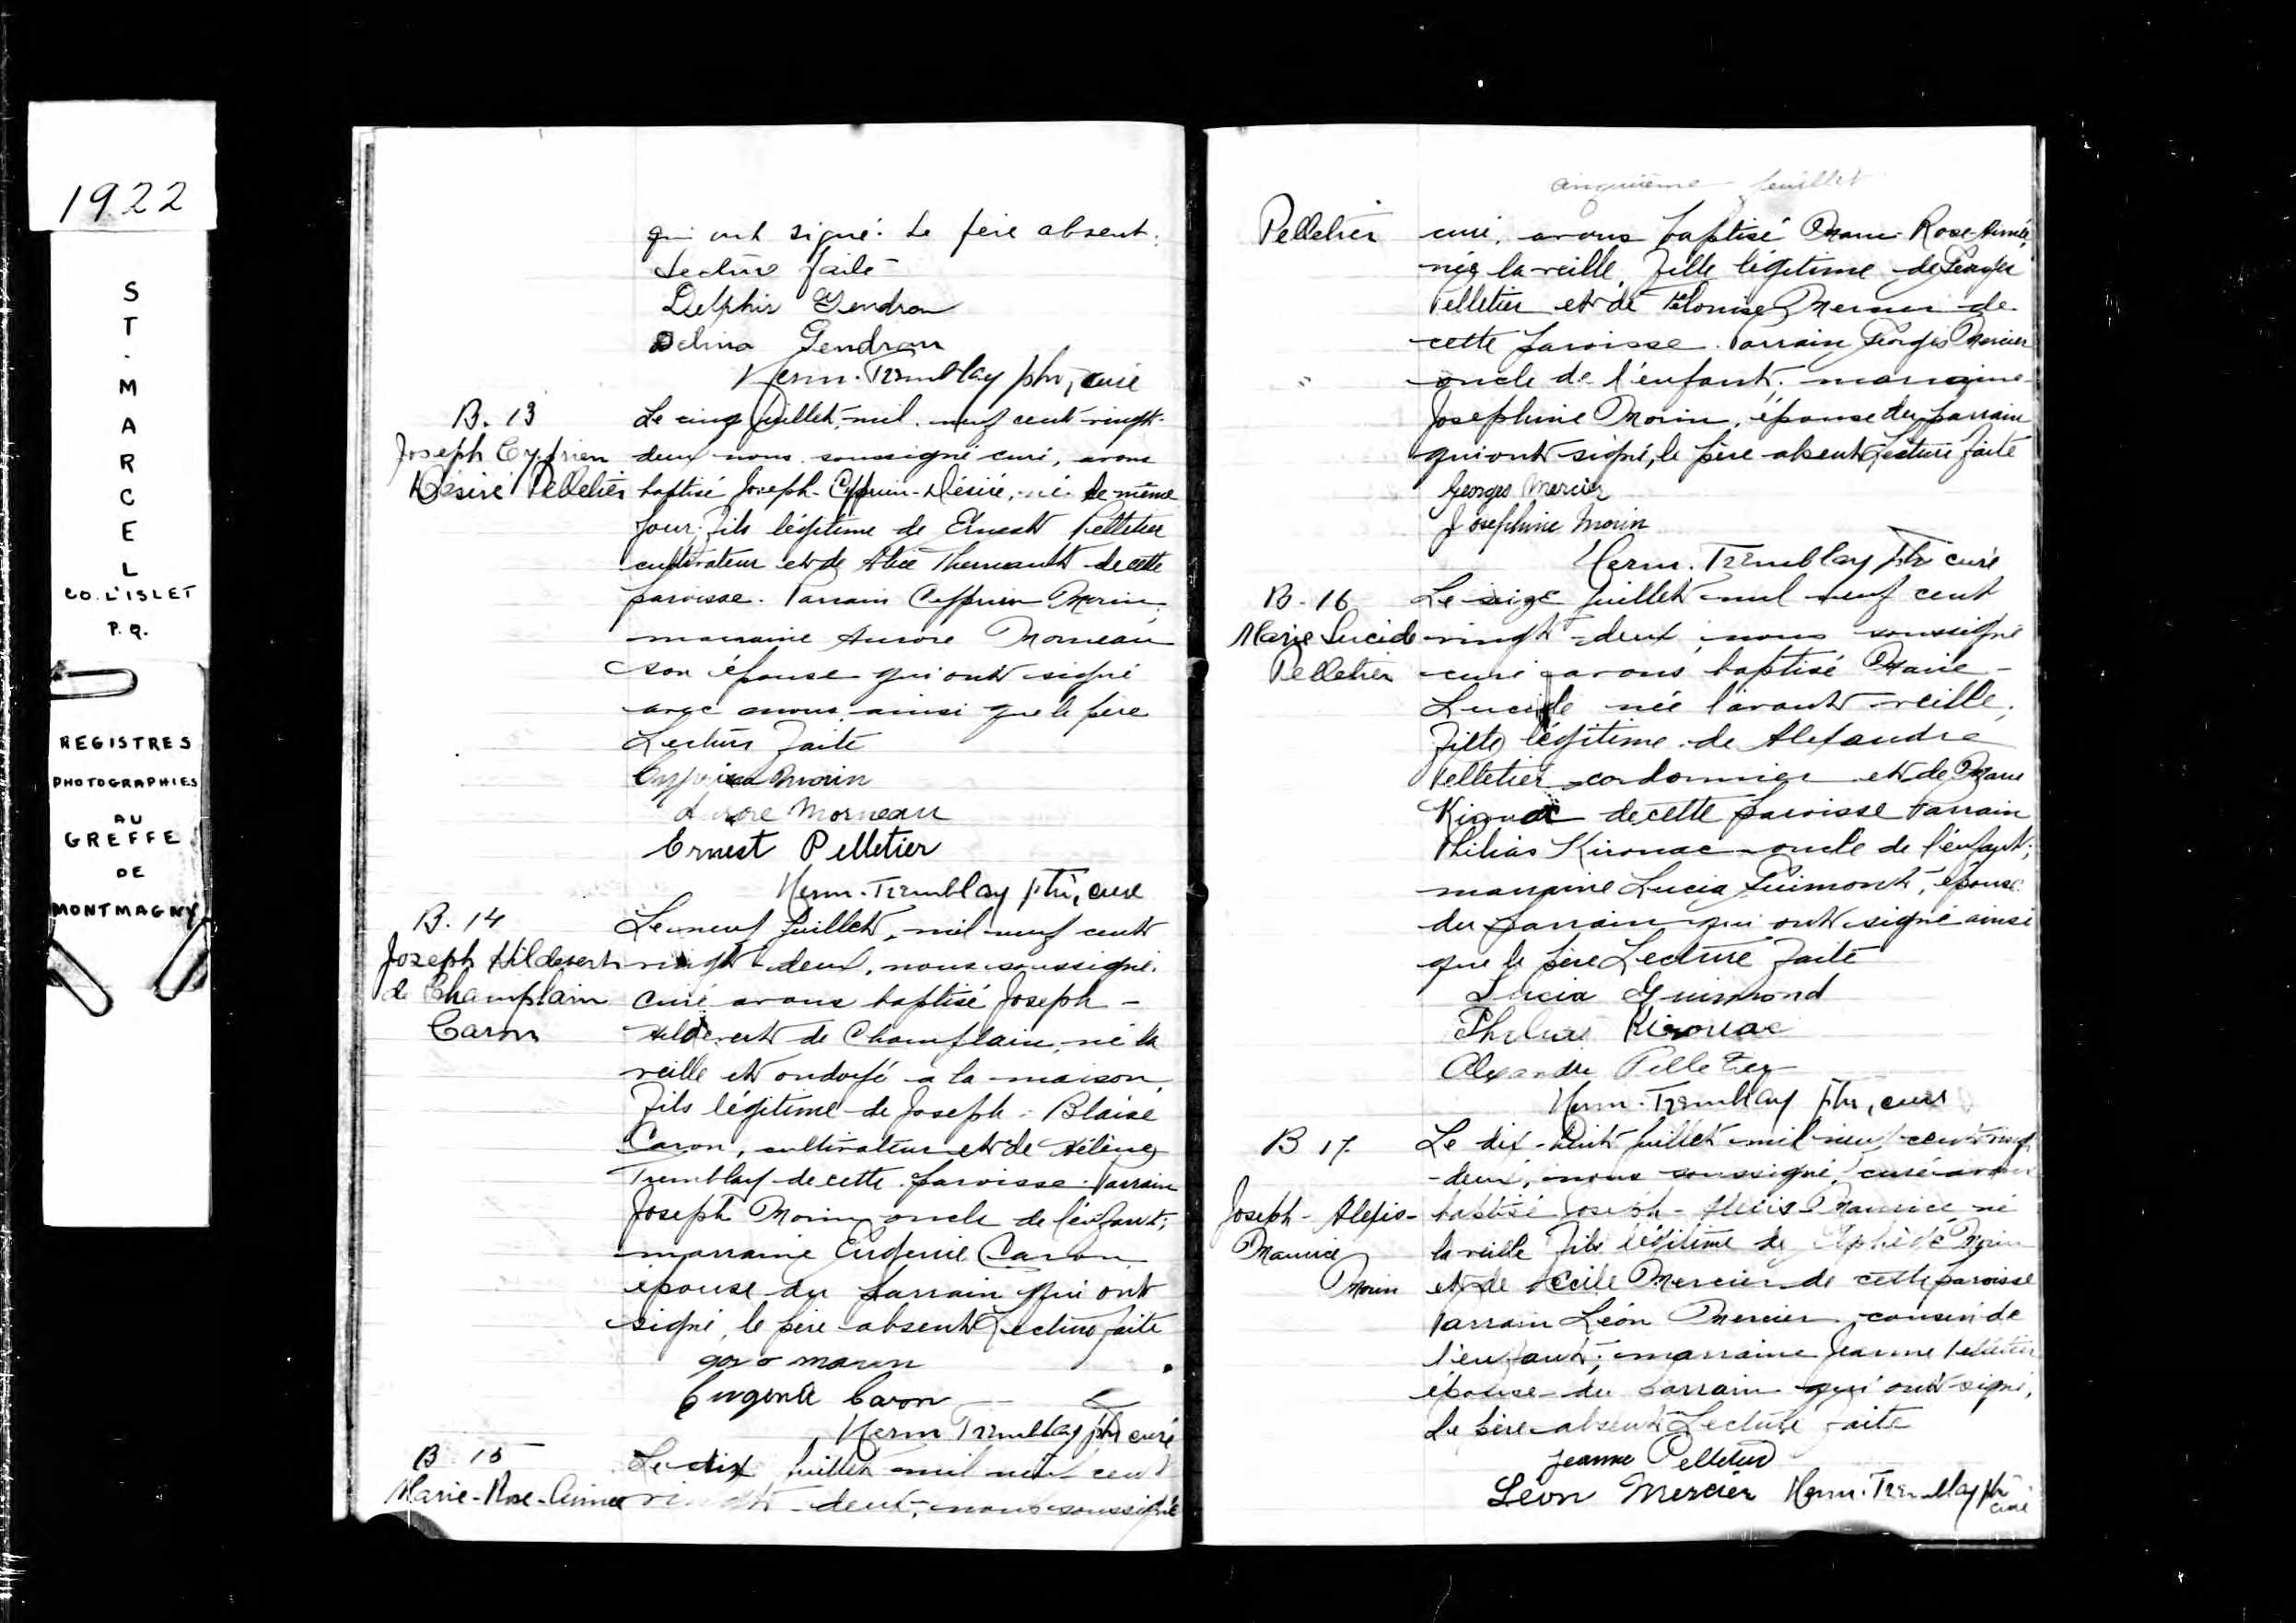 1922
ST. MARCEL
CO. L'ISLET
P.Q.
REGISTRES
PHOTOGRAPHIES
AU
GREFFE
DE
MONTMAGNY
qui ont signé. Le père absent.
Lecture faite
Delphis Gendron
Delina Gendron
Herm. Tremblay ptre, curé
B. 13
Joseph Cyprien
Désiré Pelletier
Le cinq juillet, mil neuf cent vingt-
deux nous soussigné curé, avons
baptisé Joseph-Cyprien-Désiré, né le même
jour, fils légitime de Ernest Pelletier
cultivateur et de Alice Therriault de cette
paroisse. Parrain Cyprien Morin,
marraine Aurore Morneau
son épouse qui ont signé
avec nous ainsi que le père
Lecture faite
Cyprien Morin
Aurore Morneau
Ernest Pelletier
Herm. Tremblay ptre, curé
B. 14
Joseph Hildevert
de Champlain
Caron
Le neuf juillet, mil neuf cent
vingt-deux, nous soussigné
curé avons baptisé Joseph-
Hildevert de Champlain, né la
veille et ondoyé a la maison,
fils légitime de Joseph-Blaise
Caron, cultivateur et de Hélène
Tremblay de cette paroisse. Parrain
Joseph Morin oncle de l'enfant;
marraine Eugenie Caron
épouse du parrain qui ont
signé, le père absent Lecture faite
Morin
Eugenie Caron
Herm Tremblay ptre curé
B 15
Marie-Rose-Aimée
Le dix juillet mil neuf cent
vingt-deux, nous soussigné
cinquième feuillet
Pelletier
curé, avons baptisé Marie-Rose-Aimée,
née la veille, fille légitime de Georges
Pelletier et de Elouise Mercier de
cette paroisse. Parrain Georges Mercier
oncle de l'enfant; marraine
Josephine Morin, épouse du parrain
qui ont signé, le père absent Lecture faite
Georges Mercier
Josephine Morin
Herm. Tremblay ptr curé
B. 16
Marie Lucide
Pelletier
Le seize juillet mil neuf cent
vingt-deux, nous soussigné
curé avons baptisé Marie-
Lucide née l'avant-veille,
fille légitime de Alexandre
Pelletier cordonnier et de Marie
Kirouac de cette paroisse Parrain
Philias Kirouac oncle de l'enfant;
marraine Lucia Guimont, épouse
du parrain qui ont signé ainsi
que le père Lecture faite
Lucia Guimond
Philias Kirouac
Alexandre Pelletier
Herm. Tremblay ptr, curé
B 17.
Joseph-Alexis-
Maurice
Morin
Le dix-huit juillet mil neuf cent vingt
-deux, nous soussigné, curé avons
baptisé Joseph-Alexis-Maurice né
la veille fils légitime de Morin
et de Cécile Mercier de cette paroisse
Parrain Léon Mercier, cousin de
l'enfant; marraine Jeanne Pelletier
épouse du parrain qui ont signé,
le père absent Lecture faite
Jeanne Pelletier
Léon Mercier Herm. Tremblay ptr
curé